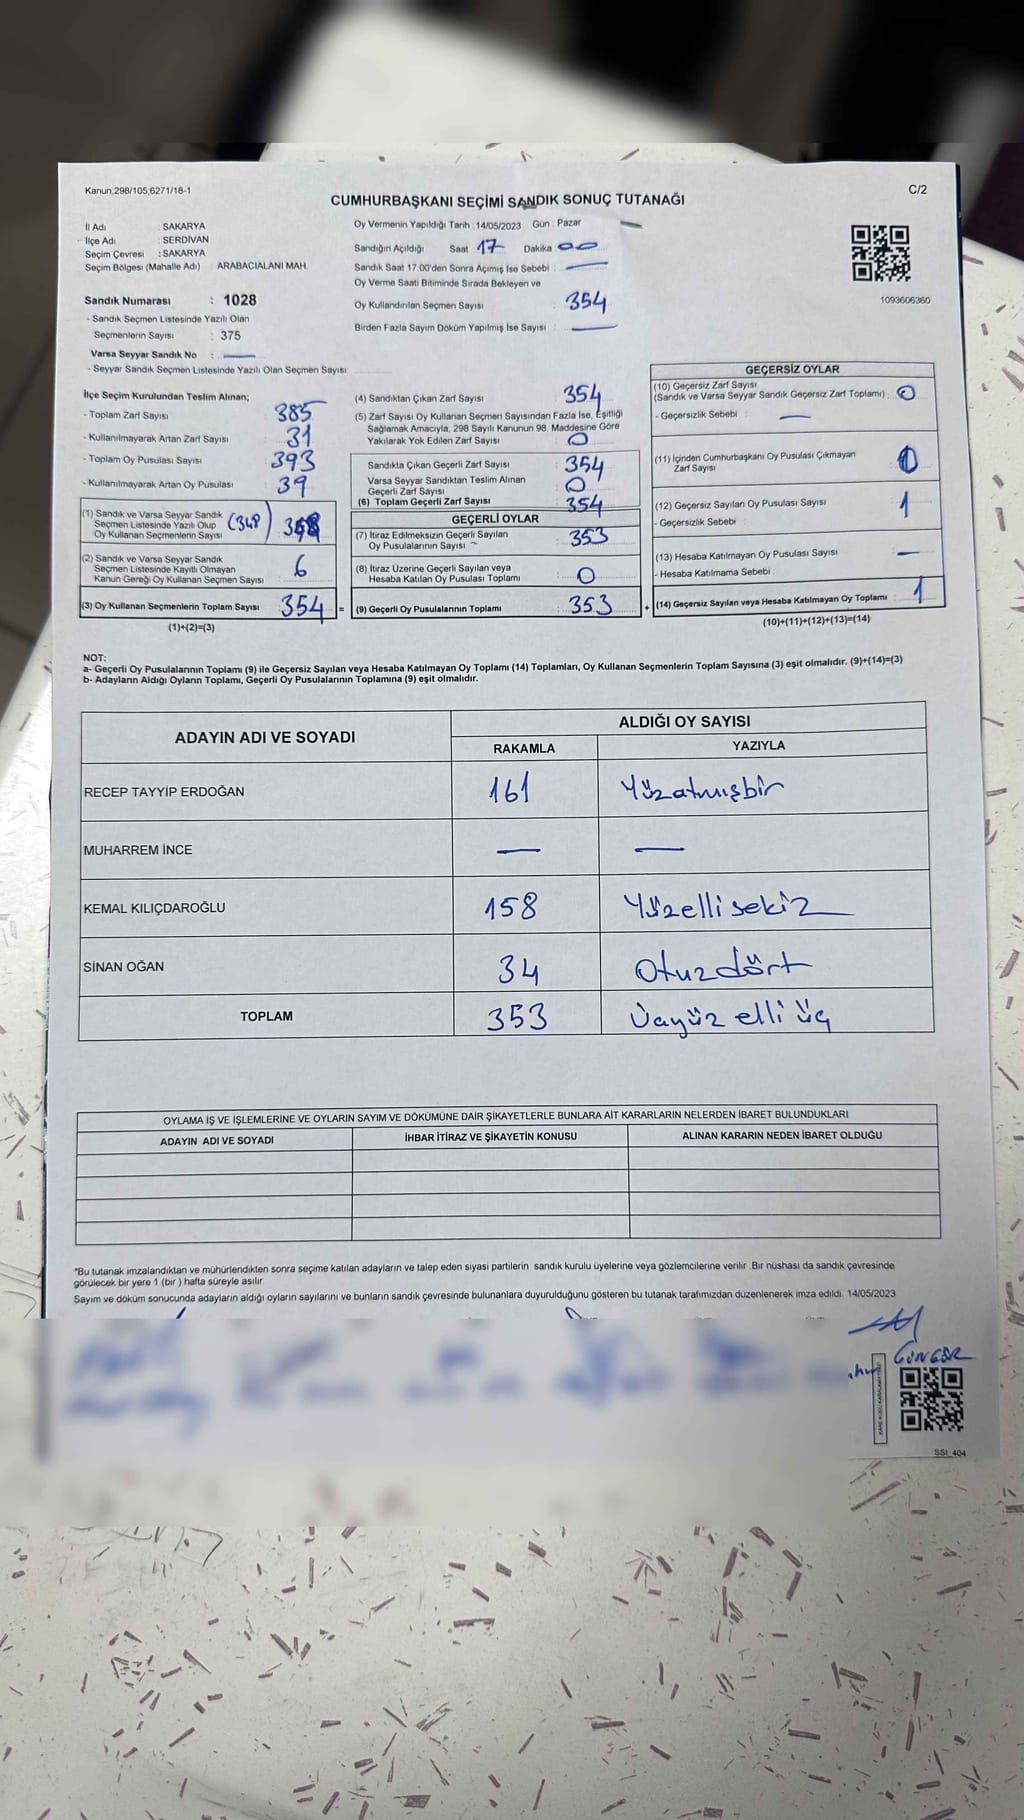 Kanun,298/105,6271/18-1
C/2
CUMHURBAŞKANI SEÇİMİ SANDIK SONUÇ TUTANAĞI
İl Adı : SAKARYA
İlçe Adı : SERDİVAN
Seçim Çevresi : SAKARYA
Seçim Bölgesi (Mahalle Adı) : ARABACIALANI MAH.
Oy Vermenin Yapıldığı Tarih : 14/05/2023 Gün : Pazar
Sandığın Açıldığı Saat 17 Dakika 00
Sandık Saat 17.00'den Sonra Açımış İse Sebebi : —
Oy Verme Saati Bitiminde Sırada Bekleyen ve
Oy Kullandırılan Seçmen Sayısı : 354
Birden Fazla Sayım Döküm Yapılmış İse Sayısı : —
1093606360
Sandık Numarası : 1028
- Sandık Seçmen Listesinde Yazılı Olan
Seçmenlerin Sayısı : 375
Varsa Seyyar Sandık No : —
- Seyyar Sandık Seçmen Listesinde Yazılı Olan Seçmen Sayısı:
İlçe Seçim Kurulundan Teslim Alınan;
- Toplam Zarf Sayısı : 385
- Kullanılmayarak Artan Zarf Sayısı : 31
- Toplam Oy Pusulası Sayısı : 393
- Kullanılmayarak Artan Oy Pusulası : 39
(1) Sandık ve Varsa Seyyar Sandık
Seçmen Listesinde Yazılı Olup (348) 348
Oy Kullanan Seçmenlerin Sayısı
(2) Sandık ve Varsa Seyyar Sandık
Seçmen Listesinde Kayıtlı Olmayan 6
Kanun Gereği Oy Kullanan Seçmen Sayısı
(3) Oy Kullanan Seçmenlerin Toplam Sayısı 354 =
(1)+(2)=(3)
(4) Sandıktan Çıkan Zarf Sayısı : 354
(5) Zarf Sayısı Oy Kullanan Seçmen Sayısından Fazla İse, Eşitliği
Sağlamak Amacıyla, 298 Sayılı Kanunun 98. Maddesine Göre
Yakılarak Yok Edilen Zarf Sayısı : 0
Sandıkta Çıkan Geçerli Zarf Sayısı : 354
Varsa Seyyar Sandıktan Teslim Alınan
Geçerli Zarf Sayısı : 0
(6) Toplam Geçerli Zarf Sayısı : 354
GEÇERLİ OYLAR
(7) İtiraz Edilmeksizin Geçerli Sayılan
Oy Pusulalarının Sayısı : 353
(8) İtiraz Üzerine Geçerli Sayılan veya
Hesaba Katılan Oy Pusulası Toplamı : 0
(9) Geçerli Oy Pusulalarının Toplamı : 353 +
GEÇERSİZ OYLAR
(10) Geçersiz Zarf Sayısı
(Sandık ve Varsa Seyyar Sandık Geçersiz Zarf Toplamı) : 0
- Geçersizlik Sebebi : —
(11) İçinden Cumhurbaşkanı Oy Pusulası Çıkmayan
Zarf Sayısı : 0
(12) Geçersiz Sayılan Oy Pusulası Sayısı : 1
- Geçersizlik Sebebi :
(13) Hesaba Katılmayan Oy Pusulası Sayısı : —
- Hesaba Katılmama Sebebi :
(14) Geçersiz Sayılan veya Hesaba Katılmayan Oy Toplamı : 1
(10)+(11)+(12)+(13)=(14)
NOT:
a- Geçerli Oy Pusulalarının Toplamı (9) ile Geçersiz Sayılan veya Hesaba Katılmayan Oy Toplamı (14) Toplamları, Oy Kullanan Seçmenlerin Toplam Sayısına (3) eşit olmalıdır. (9)+(14)=(3)
b- Adayların Aldığı Oyların Toplamı, Geçerli Oy Pusulalarının Toplamına (9) eşit olmalıdır.
ADAYIN ADI VE SOYADI
ALDIĞI OY SAYISI
RAKAMLA YAZIYLA
RECEP TAYYİP ERDOĞAN 161 Yüzatmışbir
MUHARREM İNCE — —
KEMAL KILIÇDAROĞLU 158 Yüzellisekiz
SİNAN OĞAN 34 Otuzdört
TOPLAM 353 Üçyüz elli üç
OYLAMA İŞ VE İŞLEMLERİNE VE OYLARIN SAYIM VE DÖKÜMÜNE DAİR ŞİKAYETLERLE BUNLARA AİT KARARLARIN NELERDEN İBARET BULUNDUKLARI
ADAYIN ADI VE SOYADI İHBAR İTİRAZ VE ŞİKAYETİN KONUSU ALINAN KARARIN NEDEN İBARET OLDUĞU
*Bu tutanak imzalandıktan ve mühürlendikten sonra seçime katılan adayların ve talep eden siyasi partilerin sandık kurulu üyelerine veya gözlemcilerine verilir .Bir nüshası da sandık çevresinde
görülecek bir yere 1 (bir ) hafta süreyle asılır.
Sayım ve döküm sonucunda adayların aldığı oyların sayılarını ve bunların sandık çevresinde bulunanlara duyurulduğunu gösteren bu tutanak tarafımızdan düzenlenerek imza edildi. 14/05/2023
GÜNGÖR
SSI_404